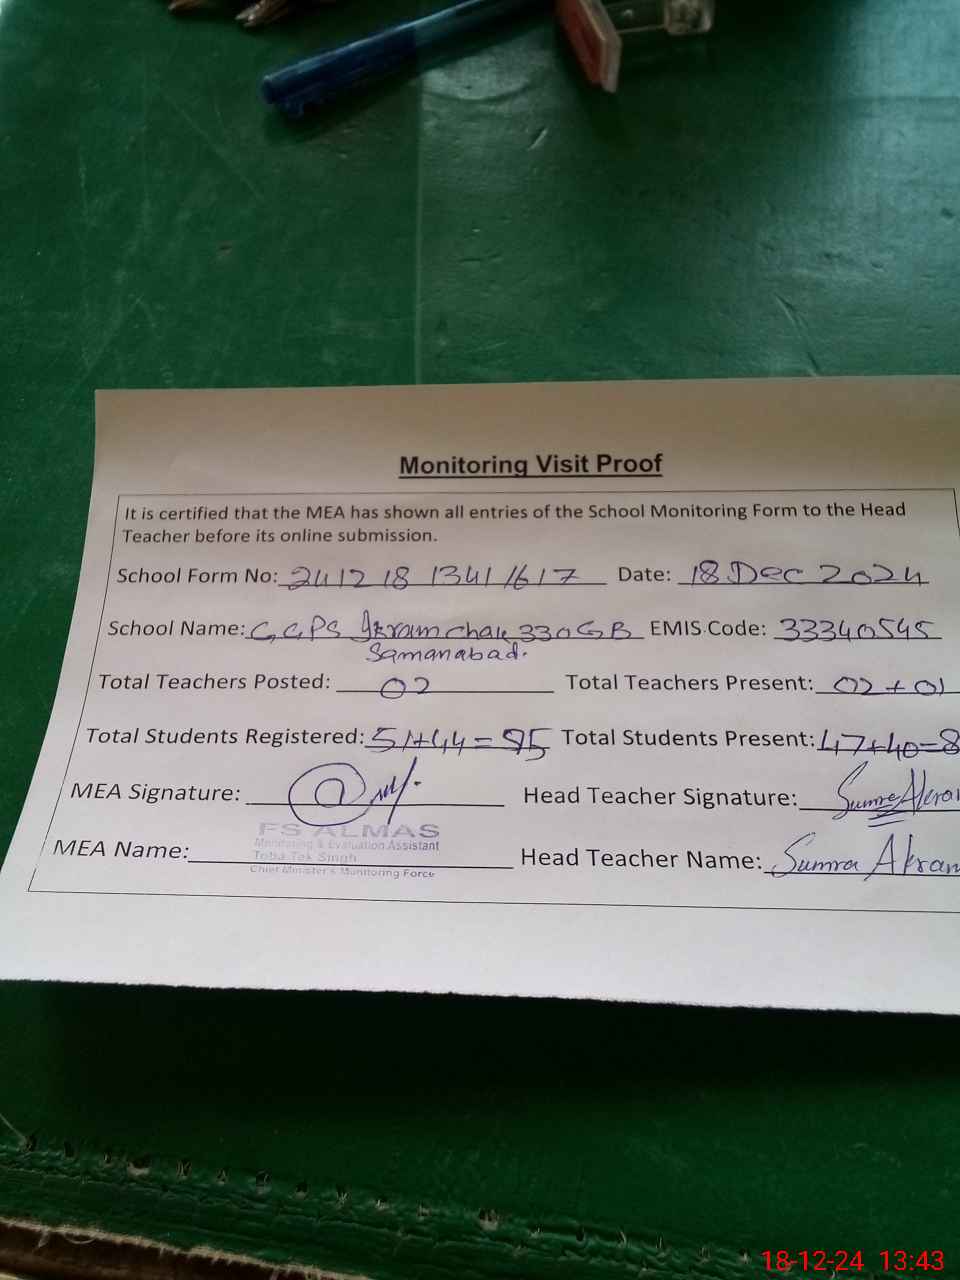 Monitoring Visit Proof
It is certified that the MEA has shown all entries of the School Monitoring Form to the Head
Teacher before its online submission.
School Form No: 241218 1341/617 Date: 18 Dec 2024
School Name: GGPS Ikram chak 330GB EMIS Code: 33340545
Samanabad.
Total Teachers Posted: 02 Total Teachers Present: 02+01
Total Students Registered: 51+44=95 Total Students Present: 47+40=8
MEA Signature: Head Teacher Signature: Sumra Akra
FS ALMAS
Monitoring & Evaluation Assistant
Toba Tek Singh
Chief Minister's Monitoring Force
MEA Name: Head Teacher Name: Sumra Akram
18-12-24 13:43